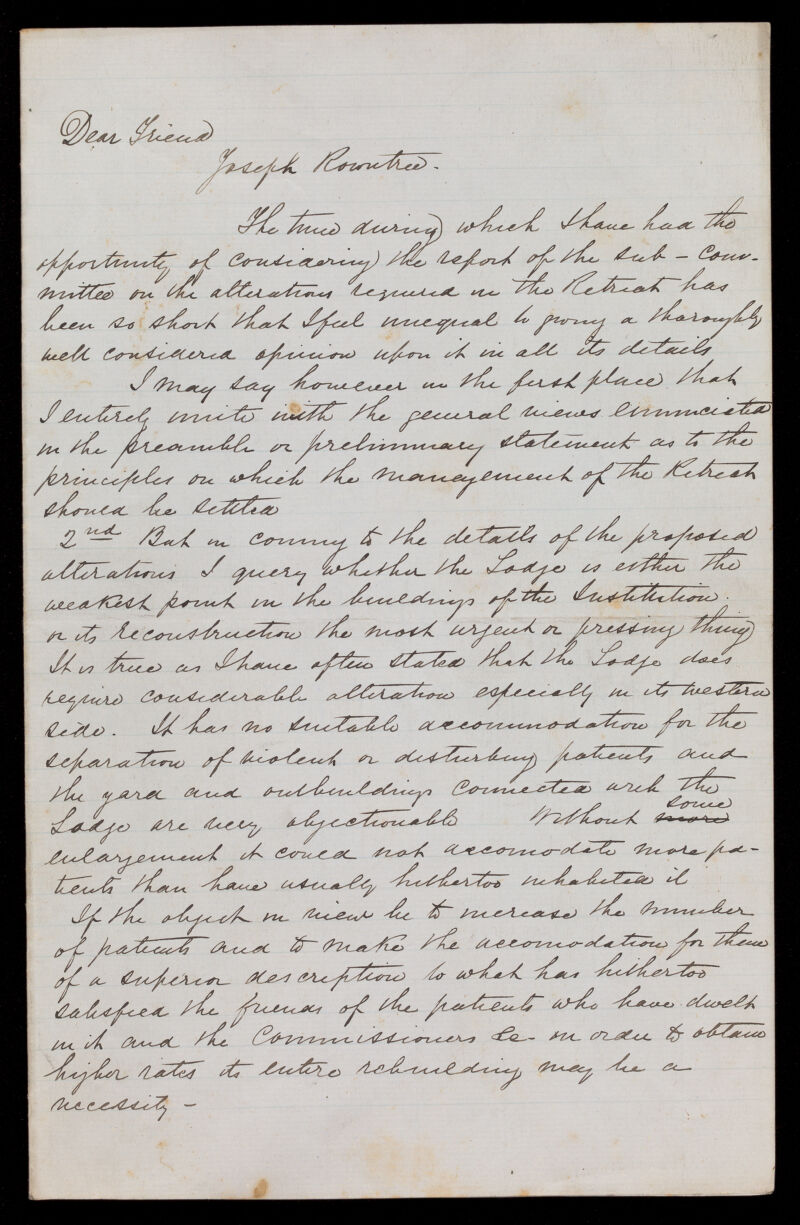 Dear Friend
Joseph Rowntree.
The time during which I have had the
opportunity of considering the report of the sub-com-
mittee on the alterations required in the Retreat has
been so short that I feel unequal to giving a thoroughly
well considered opinion upon it in all its details
I may say however in the first place that
I entirely unite with the general views enunciated
in the preamble or preliminary statement as to the
principles on which the management of the Retreat
should be settled
2nd But in coming to the details of the proposed
alterations I query whether the Lodge is either the
weakest point in the buildings of the Institution.
or its reconstruction the most urgent or pressing thing
It is true as I have often stated that the Lodge does
require considerable alteration especially in its western
side. It has no suitable accommodation for the
separation of violent or disturbing patients and
the yard and outbuildings connected with the
Lodge are very objectionable Without more some
enlargement it could not accomodate more pa-
tients than have usually hithertoo inhabited it
If the object in view be to increase the number
of patients and to make the accomodation for them
of a superior description to what has hithertoo
satisfied the friends of the patients who have dwelt
in it and the Commissioners &c in order to obtain
higher rates its entire rebuilding may be a
necessity -